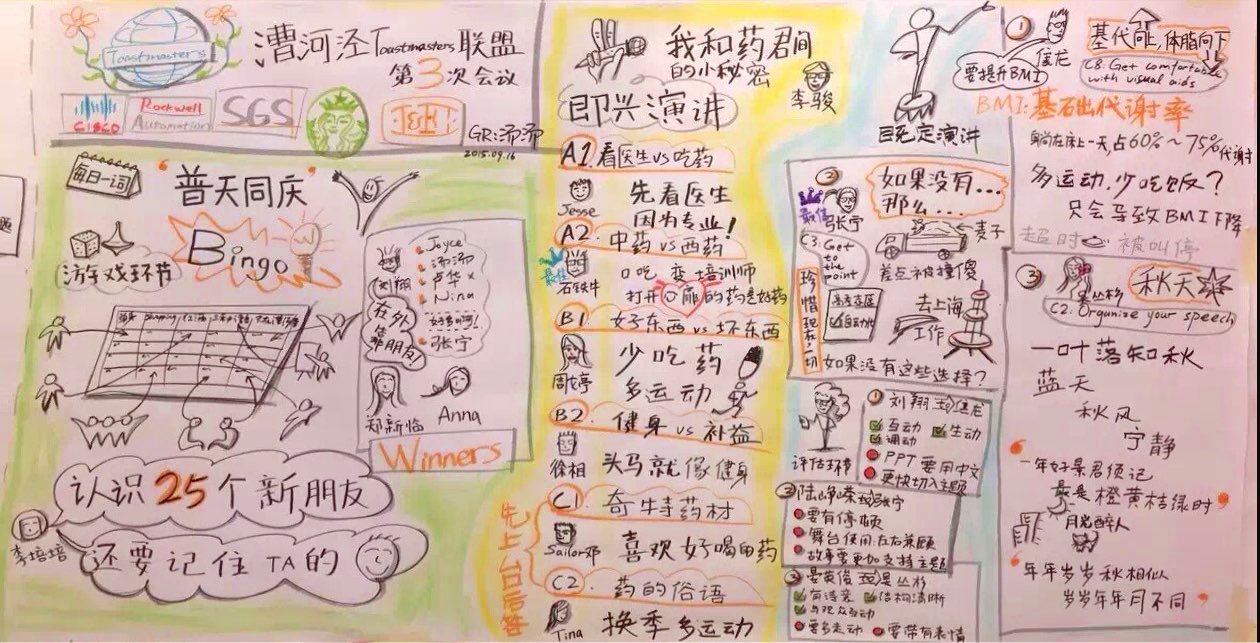 Toastmasters
漕河泾Toastmasters联盟
第3次会议
CISCO
Rockwell
Automation
SGS
GR:汤汤
2015.09.16
每日一词
'普天同庆'
游戏环节
Bingo
刘翔
在外
靠朋友
Joyce
汤汤
卢华
Nina
好多啊!
张宁
郑新临
Anna
Winners
认识25个新朋友
李培培
还要记住TA的
我和药君间
的小秘密
李骏
即兴演讲
A1 看医生vs吃药
Jesse
先看医生
因为专业!
A2. 中药vs西药
最佳
石铁牛
口吃 变 培训师
打开心扉的药是好药
B1. 好东西 vs 坏东西
周婷
少吃药
多运动
B2. 健身 vs 补益
徐相
头马就像健身
先上台后答
C1. 奇特药材
Sailor邓
喜欢好喝的药
C2. 药的俗语
Tina
换季多运动
已定演讲
①
要提升BMI
佳龙
基代向上,体脂向下
C8. Get comfortable
with visual aids
BMI:基础代谢率
躺在床上一天,占60%~75%代谢
多运动,少吃饭?
只会导致BMI下降
超时 被叫停
②
最佳
张宁
如果没有...
那么...
C3. Get
to the
point
麦子
差点被撞傻
珍惜现在一切
去上海
工作
如果没有这些选择?
③
晏丛杉
秋天
C2. Organize your speech
一叶落知秋
蓝天
秋风
宁静
一年好景君须记
最是橙黄桔绿时
年年岁岁秋相似
岁岁年年月不同
评估环节
① 刘翔 to 佳龙
互动
生动
调动
PPT要用中文
更快切入主题
要有停顿
舞台使用:左右兼顾
故事要更加支持主题
③ 晏英俊 to 晏丛杉
结构清晰
与观众互动
要多走动
要带有表情